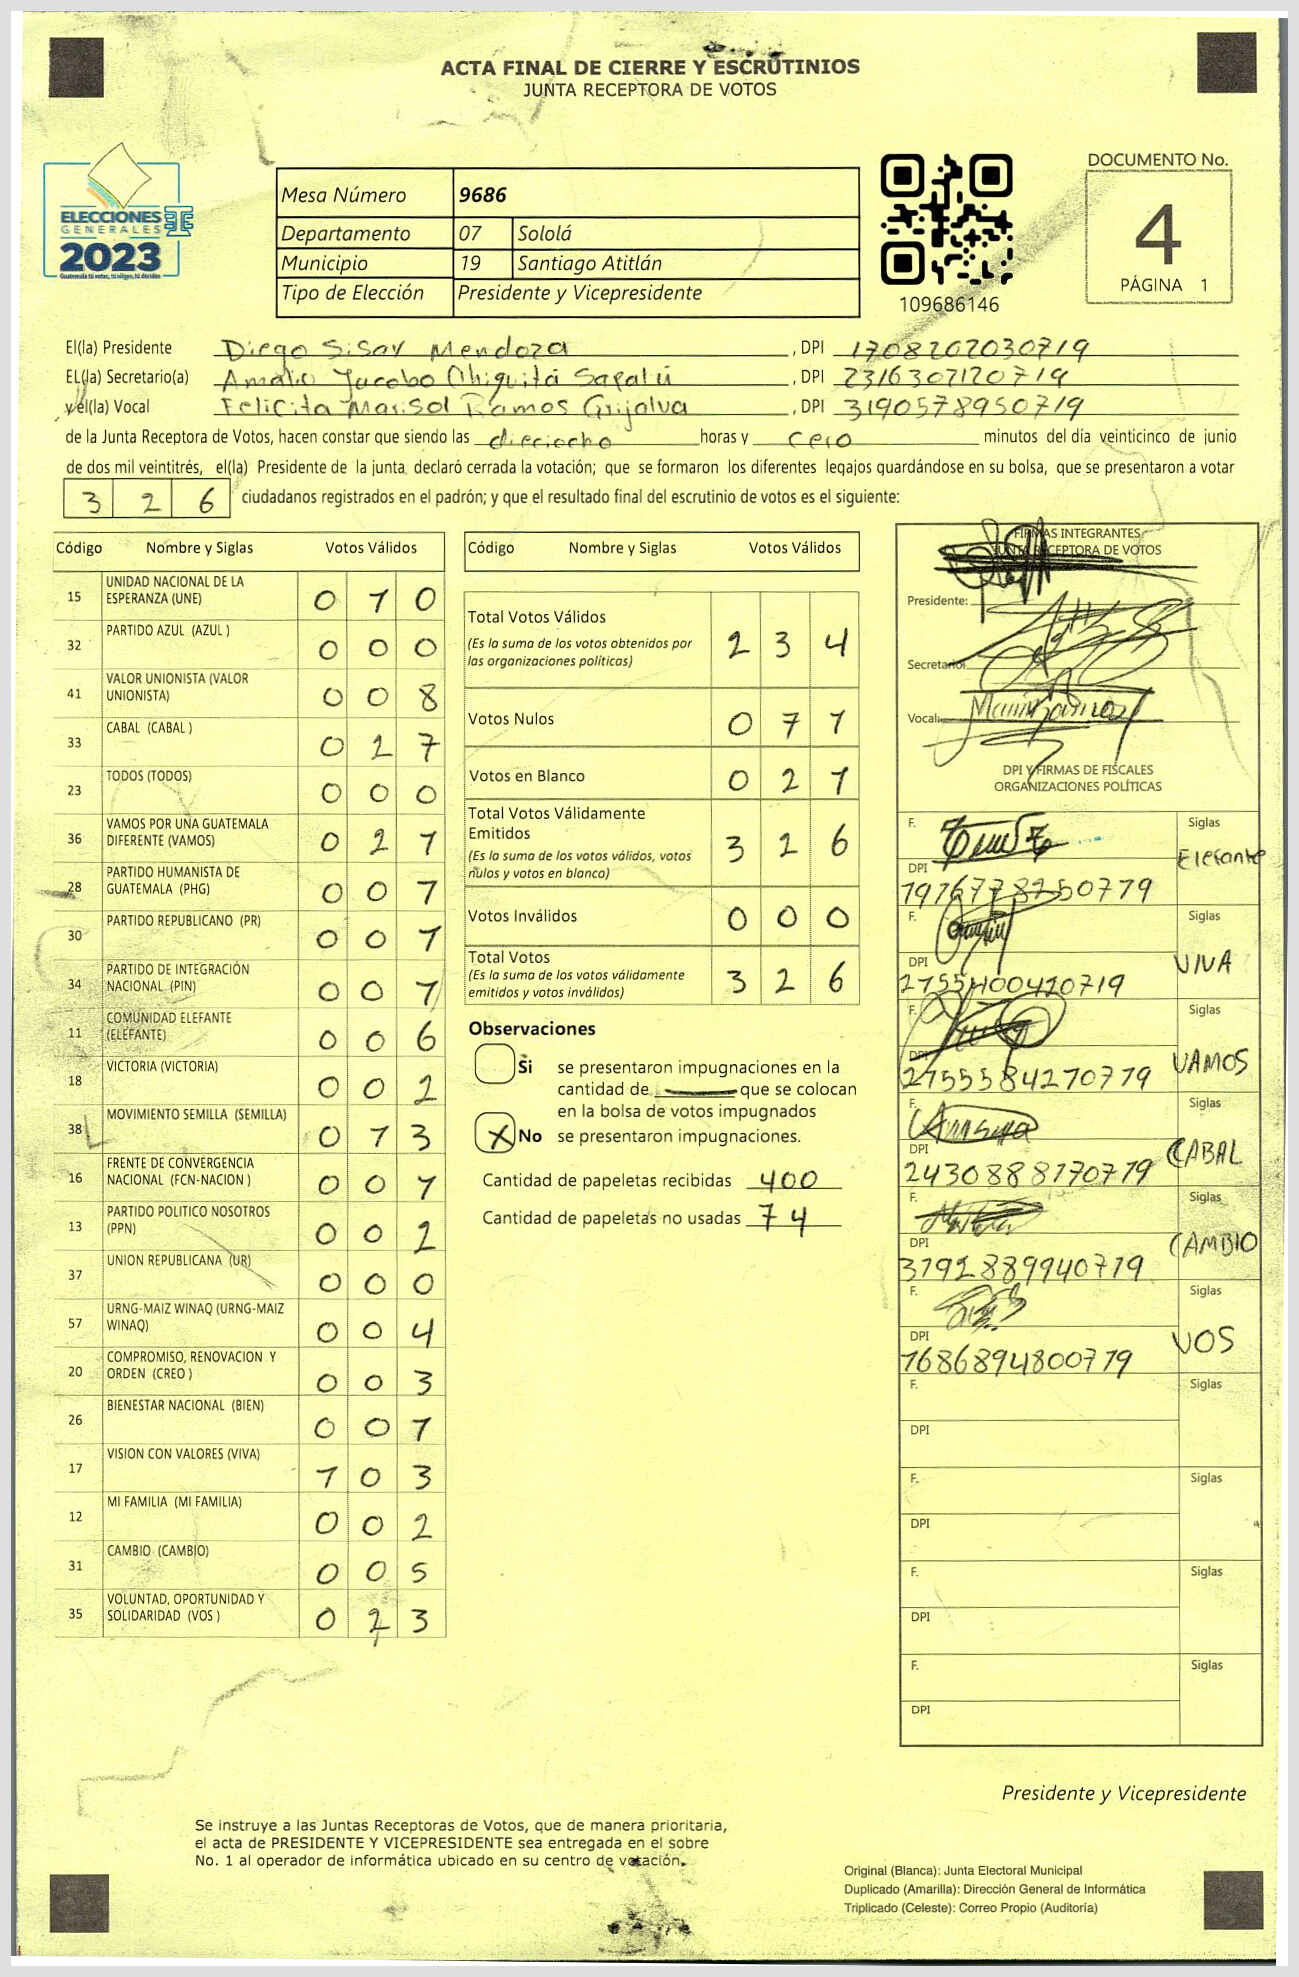 ACTA FINAL DE CIERRE Y ESCRUTINIOS
JUNTA RECEPTORA DE VOTOS
ELECCIONES
GENERALES
2023
Guatemala tú votas, tú eliges, tú decides
Mesa Número 9686
Departamento 07 Sololá
Municipio 19 Santiago Atitlán
Tipo de Elección Presidente y Vicepresidente
109686146
DOCUMENTO No.
4
PÁGINA 1
El(la) Presidente Diego Sisay Mendoza , DPI 1708202030719
EL(la) Secretario(a) Amalio Jacobo Chiquitá Sapalú , DPI 2316307120719
y el(la) Vocal Felicita Marisol Ramos Grijalva , DPI 3190578950719
de la Junta Receptora de Votos, hacen constar que siendo las dieciocho horas y cero minutos del día veinticinco de junio
de dos mil veintitrés, el(la) Presidente de la junta declaró cerrada la votación; que se formaron los diferentes legajos guardándose en su bolsa, que se presentaron a votar
3 2 6 ciudadanos registrados en el padrón; y que el resultado final del escrutinio de votos es el siguiente:
Código Nombre y Siglas Votos Válidos
15 UNIDAD NACIONAL DE LA ESPERANZA (UNE) 0 1 0
32 PARTIDO AZUL (AZUL ) 0 0 0
41 VALOR UNIONISTA (VALOR UNIONISTA) 0 0 8
33 CABAL (CABAL ) 0 2 7
23 TODOS (TODOS) 0 0 0
36 VAMOS POR UNA GUATEMALA DIFERENTE (VAMOS) 0 2 1
28 PARTIDO HUMANISTA DE GUATEMALA (PHG) 0 0 1
30 PARTIDO REPUBLICANO (PR) 0 0 1
34 PARTIDO DE INTEGRACIÓN NACIONAL (PIN) 0 0 1
11 COMUNIDAD ELEFANTE (ELEFANTE) 0 0 6
18 VICTORIA (VICTORIA) 0 0 2
38 MOVIMIENTO SEMILLA (SEMILLA) 0 1 3
16 FRENTE DE CONVERGENCIA NACIONAL (FCN-NACION ) 0 0 1
13 PARTIDO POLITICO NOSOTROS (PPN) 0 0 2
37 UNION REPUBLICANA (UR) 0 0 0
57 URNG-MAIZ WINAQ (URNG-MAIZ WINAQ) 0 0 4
20 COMPROMISO, RENOVACION Y ORDEN (CREO ) 0 0 3
26 BIENESTAR NACIONAL (BIEN) 0 0 1
17 VISION CON VALORES (VIVA) 1 0 3
12 MI FAMILIA (MI FAMILIA) 0 0 2
31 CAMBIO (CAMBIO) 0 0 5
35 VOLUNTAD, OPORTUNIDAD Y SOLIDARIDAD (VOS ) 0 2 3
Código Nombre y Siglas Votos Válidos
Total Votos Válidos 2 3 4
(Es la suma de los votos obtenidos por
las organizaciones políticas)
Votos Nulos 0 7 1
Votos en Blanco 0 2 1
Total Votos Válidamente
Emitidos 3 2 6
(Es la suma de los votos válidos, votos
nulos y votos en blanco)
Votos Inválidos 0 0 0
Total Votos 3 2 6
(Es la suma de los votos válidamente
emitidos y votos inválidos)
Observaciones
Si se presentaron impugnaciones en la
cantidad de que se colocan
en la bolsa de votos impugnados
X No se presentaron impugnaciones.
Cantidad de papeletas recibidas 400
Cantidad de papeletas no usadas 74
FIRMAS INTEGRANTES
JUNTA RECEPTORA DE VOTOS
Presidente:
Secretario:
Vocal:
DPI Y FIRMAS DE FISCALES
ORGANIZACIONES POLÍTICAS
F. Siglas
Elefante
DPI
F. Siglas
VIVA
DPI
F. Siglas
VAMOS
DPI 2155584270719
F. Siglas
CABAL
DPI 2430888170719
F. Siglas
CAMBIO
DPI 3192889940719
F. Siglas
VOS
DPI 1686894800719
F. Siglas
DPI
F. Siglas
DPI
F. Siglas
DPI
F. Siglas
DPI
Presidente y Vicepresidente
Se instruye a las Juntas Receptoras de Votos, que de manera prioritaria,
el acta de PRESIDENTE Y VICEPRESIDENTE sea entregada en el sobre
No. 1 al operador de informática ubicado en su centro de votación.
Original (Blanca): Junta Electoral Municipal
Duplicado (Amarilla): Dirección General de Informática
Triplicado (Celeste): Correo Propio (Auditoría)